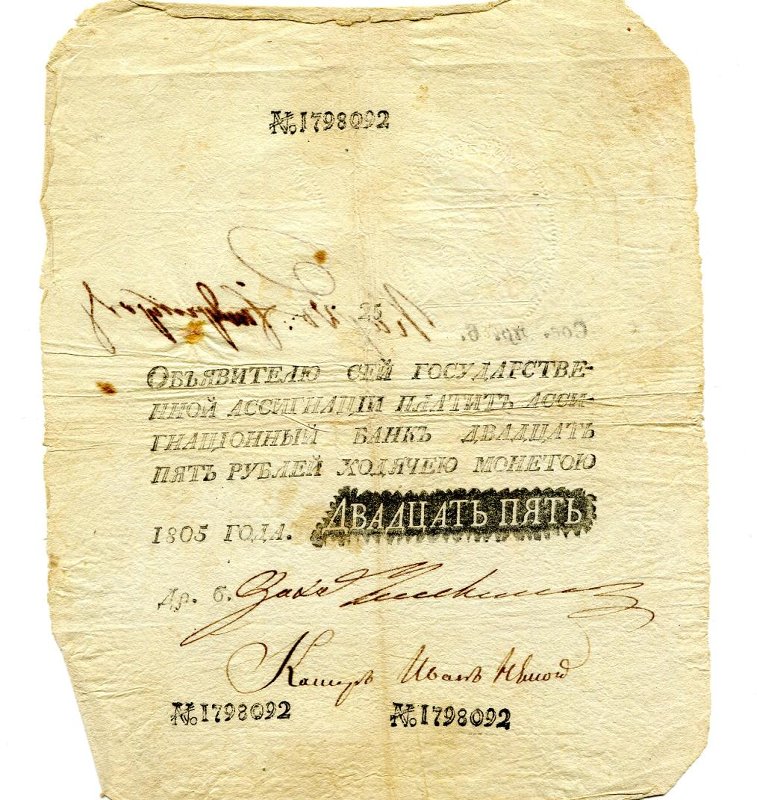 № 1798092
25
Объявителю сей государстве-
нной ассигнацiи платитъ асси-
гнацiонный банкъ двадцать
пять рублей ходячею монетою
1805 года. ДВАДЦАТЬ ПЯТЬ
Др. б.
Касиръ Иванъ
№ 1798092 № 1798092